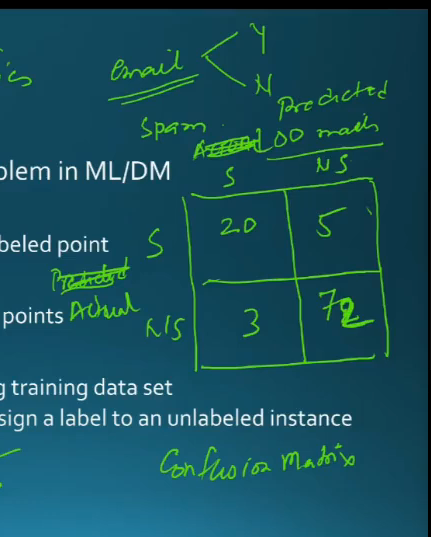 ics
email
Y
N
Predicted
Spam
100 mails
blem in ML/DM
S NS
beled point
S 20 5
points Actual
N/S 3 72
g training data set
sign a label to an unlabeled instance
Confusion Matrix